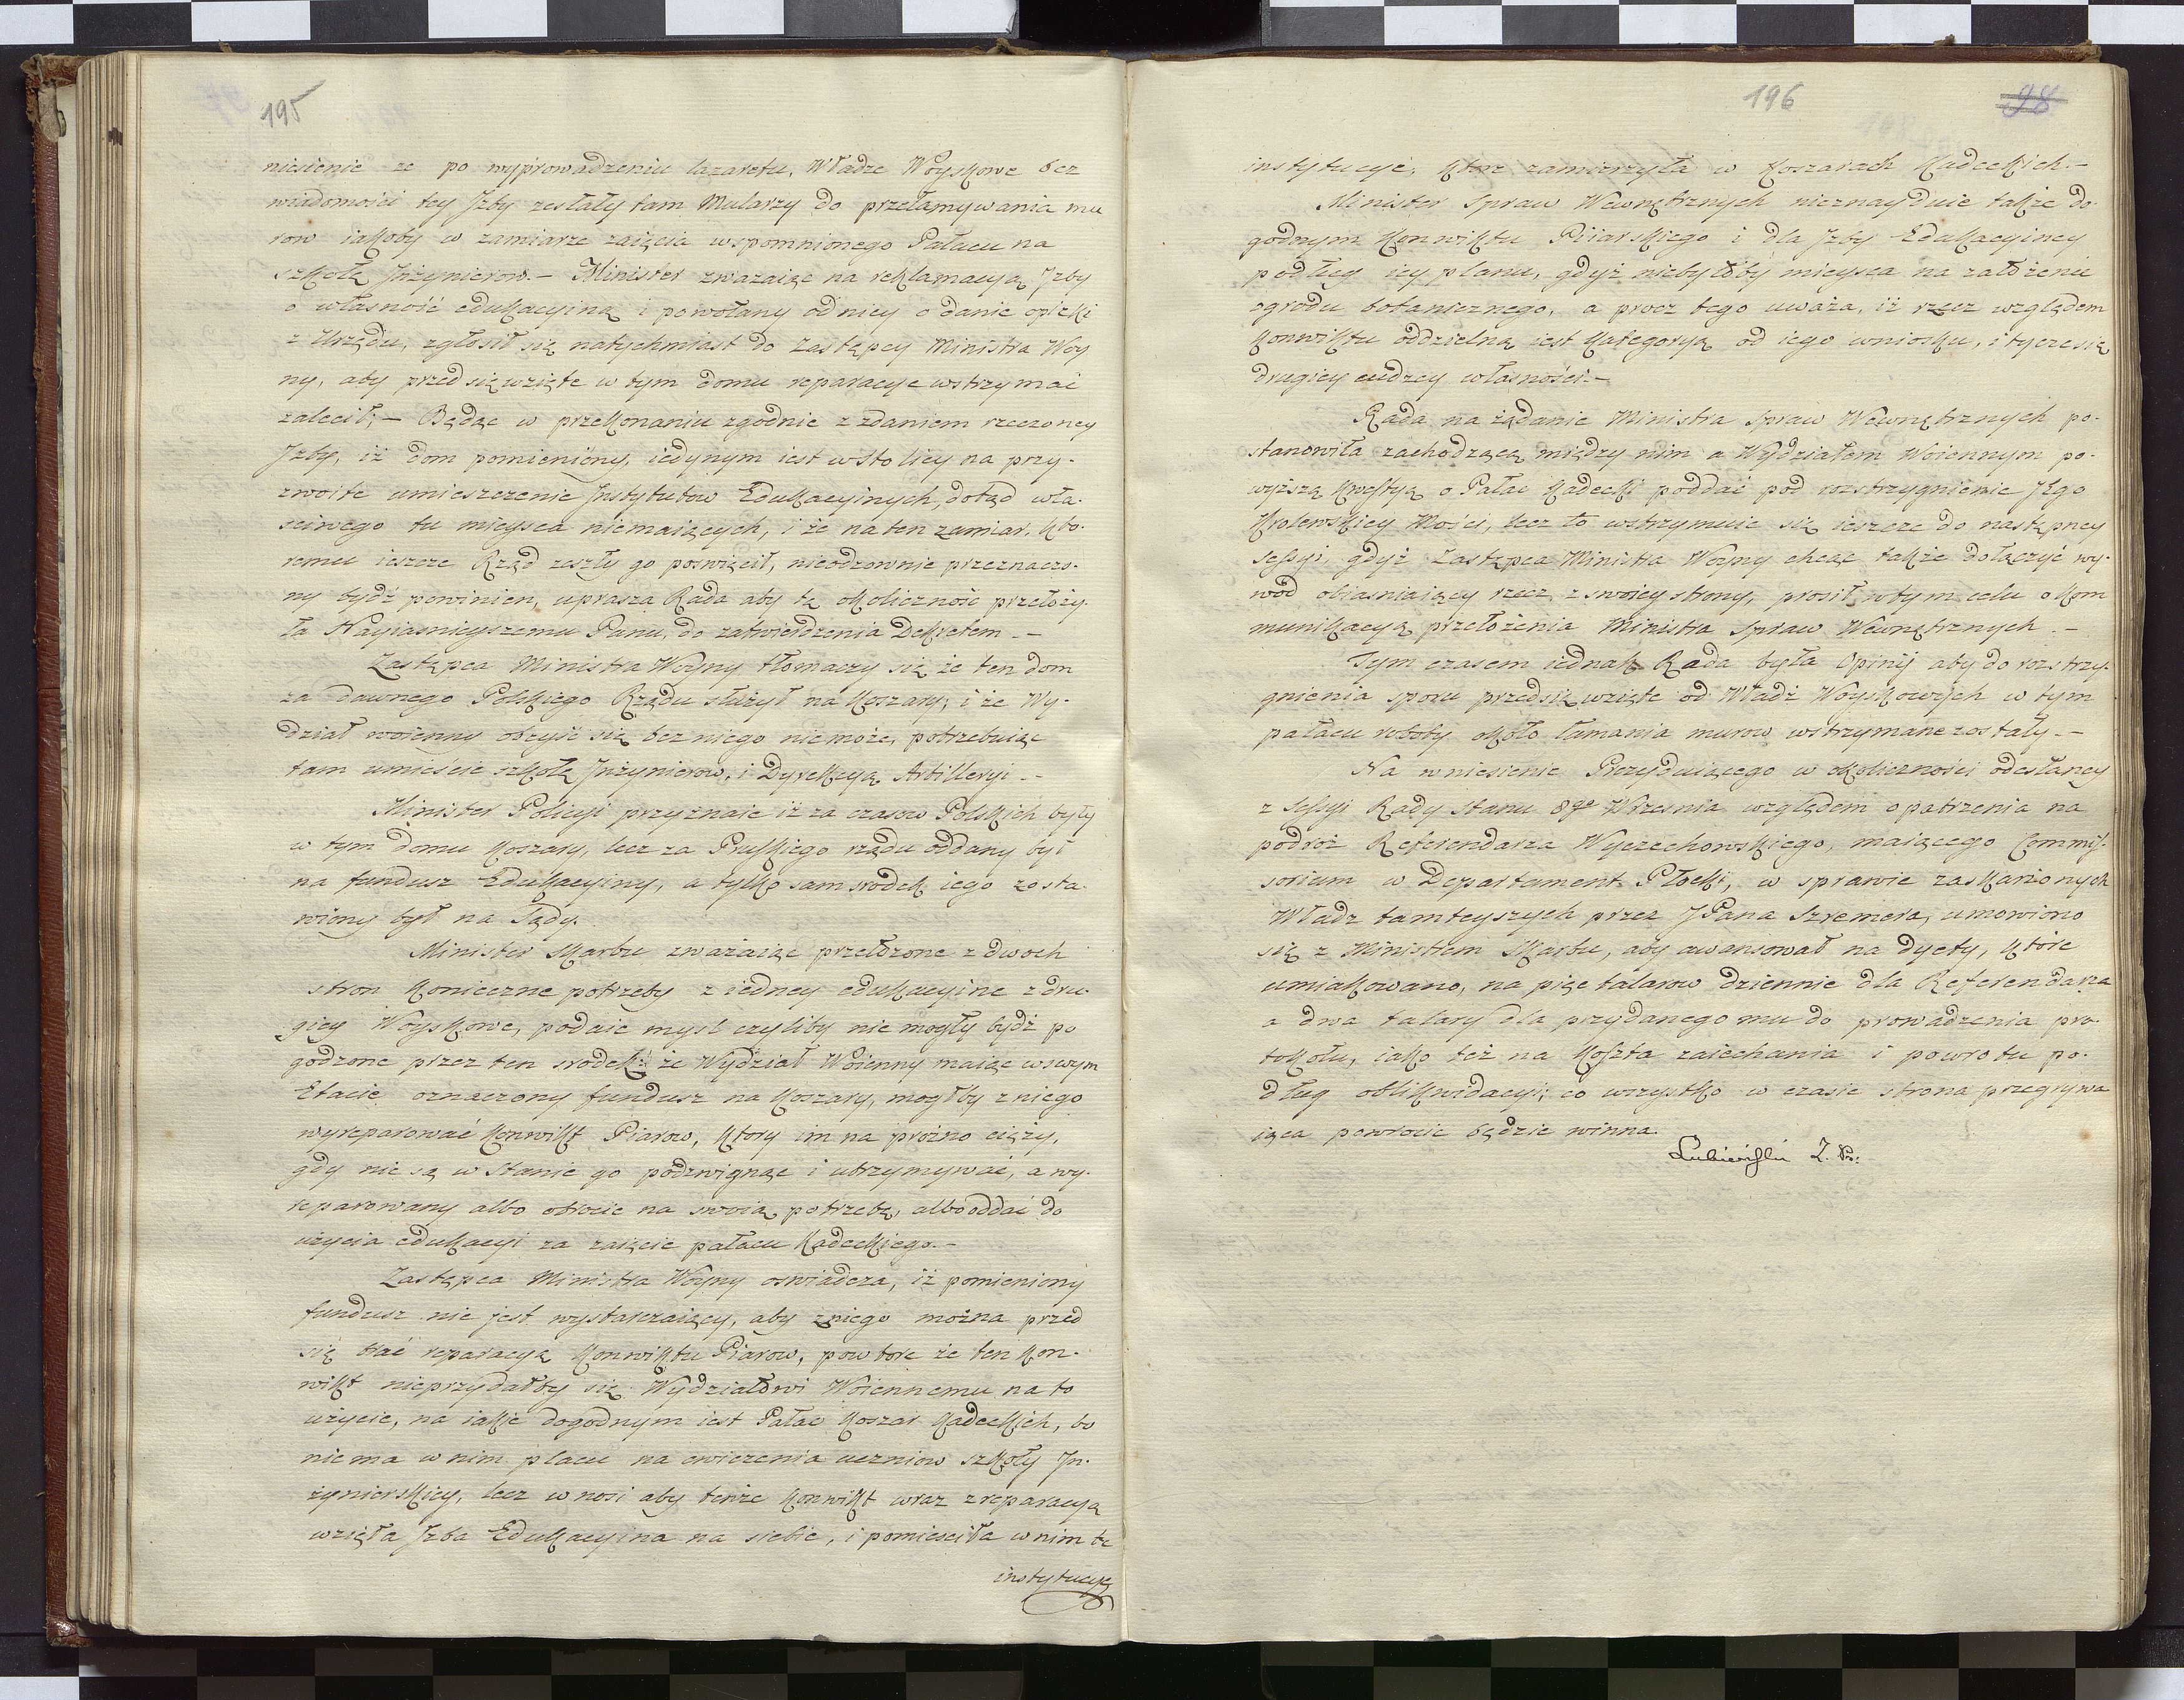 195
niesienie ze po wyprowadzeniu lazaretu, Władze Woyskowe bez
wiadomości tey Jzby zesłały tam Mularzy do przełamywania mu
row iakoby w zamiarze zaięcia wspomnionego Pałacu na
szkołę Jnżynierow.- Minister zwazaiąc na reklamacyą Jzby
o własność edukacyiną i powołany od niey o danie opieki
z Urzędu, zgłosił się natychmiast do Zastępcy Ministra Woy
ny, aby przedsięwzięte w tym domu reparacye wstrzymać
zalecił; – Będąc w przekonaniu zgodnie z zdaniem rzeczoney
Jzby, iż dom pomieniony, iedynym iest w stolicy na przy-
zwoite umieszczenie Jnstytutow Edukacyinych, dotąd wła-
sciwego tu mieysca niemaiących, i że na ten zamiar, kto-
remu ieszcze Rząd zeszły go poswięcił, nieodzownie przeznaczo-
ny bydź powinien, uprasza Rada aby tę okoliczność przełoży-
ła Nayiasnieyszemu Panu, do zatwierdzenia Dekretem.–
Zastępca Ministra Woyny tłomaczy się że ten dom
za dawnego Polskiego Rządu służył na Koszary; i że Wy-
dział woienny obeyść się bez niego niemoże, potrzebuiąc
tam umieście szkołę Jnżynierow, i Dyrekcyą Artilleryi.–
Minister Policyi przyznaie iż za czasow Polskich były
w tym domu Koszary, lecz za Pruskiego rządu oddany był
na fundusz Edukacyiny, a tylko sam srodek iego zosta-
wiony był na Sądy.
Minister Skarbu zważaiąc przełozone z dwoch
stron konieczne potrzeby z iedney edukacyine z dru-
giey Woyskowe, podaie mysl czyliby nie mogły bydź po
godzone przez ten srodek: że Wydział Woienny maiąc w swym
Etacie oznaczony fundusz na Koszary, mogłby z niego
wyreparować Konwikt Piarow, ktory im na prozno cięży,
gdy nie są w Stanie go podzwignąc i utrzymywać, a wy-
reparowany albo obrocic na swoią potrzebę, albo oddać do
uzycia edukacyi za zaięcie pałacu Kadeckiego.–
Zastępca Ministra Woyny oswiadcza, iż pomieniony
fundusz nie jest wystarczaiący, aby z niego można przed
się brać reparacyą Konwiktu Piarow, powtore że ten Kon-
wikt nieprzydałby się Wydziałowi Woiennemu na to
użycie, na iakie dogodnym iest Pałac Koszar Kadeckich, bo
niema w nim placu na cwiczenia uczniow szkoły Jn-
żynierskiey, lecz wnosi aby tenże Konwikt wraz z reparacyą
wzięła Jzba Edukacyina na siebie, i pomiesciła w nim te
instytucye
196
98
instytucye, ktore zamierzyła w Koszarach Kadeckich.–
Minister Spraw Wewnętrznych nieznayduie także do-
godnym Konwiktu Piiarskiego i dla Jzby Edukacyiney
podług iey planu, gdyż niebyłoby mieysca na założenie
ogrodu botanicznego, a procz tego uważa, iż rzecz względem
Konwiktu oddzielną iest Kategoryą od iego wniosku, i tycze się
drugiey cudzey własności.–
Rada na żądanie Ministra Spraw Wewnętrznych po-
stanowiła zachodzącą między nim a Wydziałem Woiennym po-
wyższą kwestyą o Pałac Kadecki poddać pod rozstrzygnienie Jego
Krolewskiey Mości, lecz to wstrzymuie się ieszcze do następney
Sessyi, gdyż Zastępca Ministra Woyny chcąc także dołączyć wy-
wod obiasniaiący rzecz z swoiey strony, prosił w tym celu o kom
munikacyą przełożenia Ministra Spraw Wewnętrznych.–
Tym czasem iednak Rada była Opinij aby do rozstrzy-
gnienia sporu przedsięwzięte od Władz Woyskowych w tym
pałacu roboty około łamania murow wstrzymane zostały.–
Na wniesienie Prezyduiącego w okoliczności odesłaney
z Sessyi Rady Stanu 8go Wrzesnia względem opatrzenia na
podroż Referendarza Wyczechowskiego, maiącego Commis-
sorium w Departament Płocki, w sprawie zaskarżonych
Władz tamteyszych przez JPana Szremera, umowiono
się z Ministrem Skarbu, aby awansował na dyety, ktore
umiakowano, na pięc talarow dziennie dla Referendarza
a dwa talary dla przydanego mu do prowadzenia pro-
tokołu, iako też na Koszta zaiechania i powrotu po-
dług oblikwidacyi; co wszystko w czasie strona przegrywa
iąca powrocic będzie winna.
Lubieński Z. Pr: